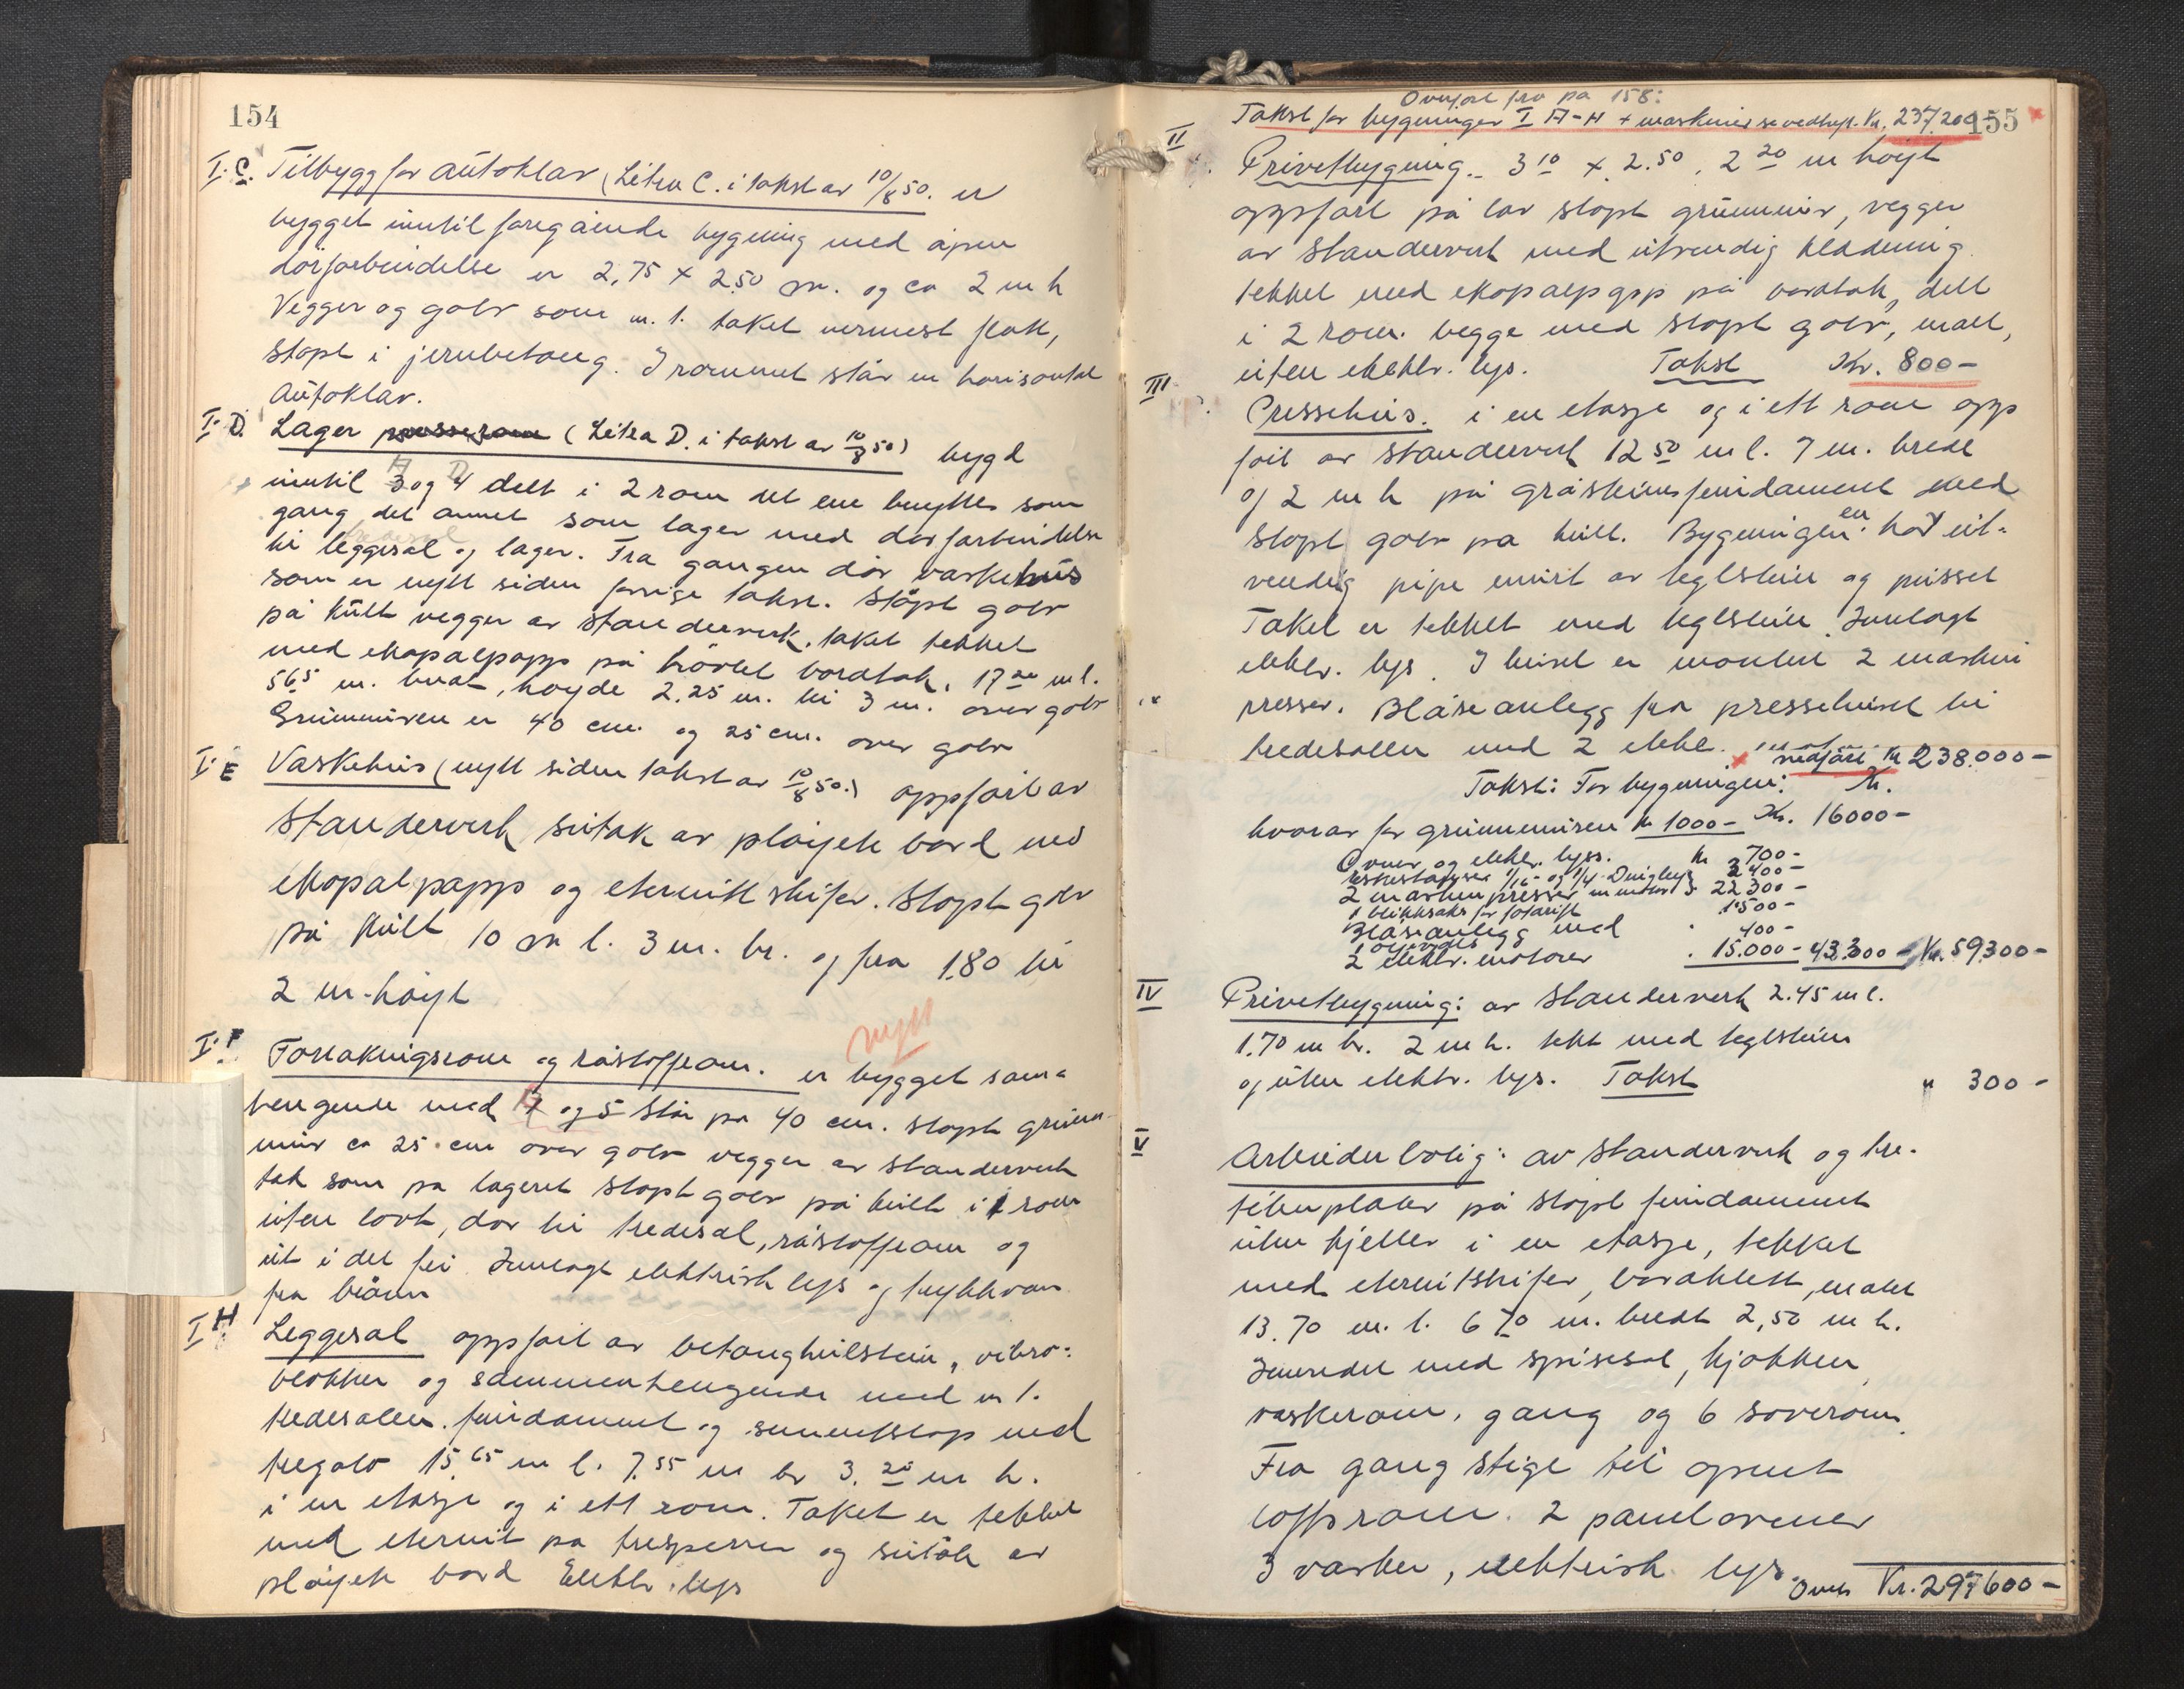 154
I. C. Tilbygg for autoklav (Litra C. i takst av 10/8 50. er
bygget inntil foregående bygning med åpen
dörforbindelse er 2,75 x 2.50 m. og ca 2 m h
Vegger og golv som m. 1. taket nermest flatt,
stöpt i jernbetong. I rommet står en horisontal
Autoklav.
I. D. Lager presserom (Litra D. i takst av 10/8 50) bygd
inntil 3 og 4 delt i 2 rom det ene benyttes som
gang det annet som lager med dörforbindelse
til leggesal og lager. Fra gangen dör vaskehus
som er nytt siden forrige takst. Stöpt golv
på kult vegger av standerverk, taket tekket
med ekopalpapp på hövlet bordtak, 17 20 m l.
5 65 m. bredt, höyde 2.25 m. til 3 m. over golv
Grunnmuren er 40 cm. og 25 cm. over golv
I. E Vaskehus (nytt siden takst av 10/8 50.) oppfört av
standerverk sutak av plöyete bord med
ekopalpapp og eternitt skifer. Stöpt golv
på kult 10 m l. 3 m. br. og fra 1.80 til
2 m. höyt
nytt
I. F Forsakningsrom og råstoffrom. er bygget sam=
hengende med 4 og 5 står på 40 cm. stöpt grunn-
mur ca 25 cm over golv vegger av standerverk
tak som på lageret stöpt golv på kult i 1 rom
uten lovt, dör til tredesal, råstoffrom og
ut i det fri. Innlagt elektrisk lys og trykkvan
fra brönn
I H Leggesal oppfört av betonghulstein, vibro=
blokker og sammenhengende med m 1.
tredesalen. fundament og sementstöp med
tregolv 15.65 m l. 7.55 m br 3.20 m h.
i en etasje og i ett rom. Taket er tekket
med eternit på tresperrer og sutak av
plöyete bord Elektr. lys
Overfört fra pa 158:
Takst for bygninger I A-H + maskiner se vedhef. Kr. 237.200
155
II Privetbygning. 3 10 x 2.50, 2 20 m höyt
oppfört på lav stöpt grunnmur, vegger
av standerverk med utvendig kledning
tekket med ekopalpapp på bordtak, delt
i 2 rom. begge med stöpt golv, malt,
uten elektr. lys. Takst Kr. 800-
III Pressehus. i en etasje og i ett rom opp
fört av standerverk 12 50 m l. 7 m. bredt
og 2 m h på gråsteinsfundament med
stöpt golv på kult. Bygningen har en ut=
vendig pipe murt av teglstein og pusset
Taket er tekket med teglstein. Innlagt
elektr. lys. I huset er montert 2 maskin
presser. Blåseanlegg fra pressehuset til
tredesalen med 2 elektr. mot.
nedfört Kr 238.000-
Takst: For bygningen: Kr.
hvorav for grunnmuren kr 1000- Kr. 16000-
Ovner og elektr. lys. kr 700-
1/16 og 1/4 2400-
2 maskin presser m motor 22300-
1 blikksaks for fotdrift 1500-
Blåseanlegg med 400-
2 elektr. motorer 15.000- 43.300- Kr. 59.300-
IV Privetbygning: av standerverk 2.45 m l.
1.70 m br. 2 m h. tekt med teglstein
og uten elektr. lys. Takst " 300-
V Arbeiderbolig: av standerverk og tre-
fiberplater på stöpt fundament
uten kjeller i en etasje, tekket
med eternitskifer, bordklett, malet
13.70 m. l. 6 70 m. bredt 2,50 m h.
Innredet med spisesal, kjökken,
vaskerom, gang og 6 soverom.
Fra gang stige til åpent
loftsrom. 2 panelovner
3 vasker, elektrisk lys.
Overf. Kr. 297600-